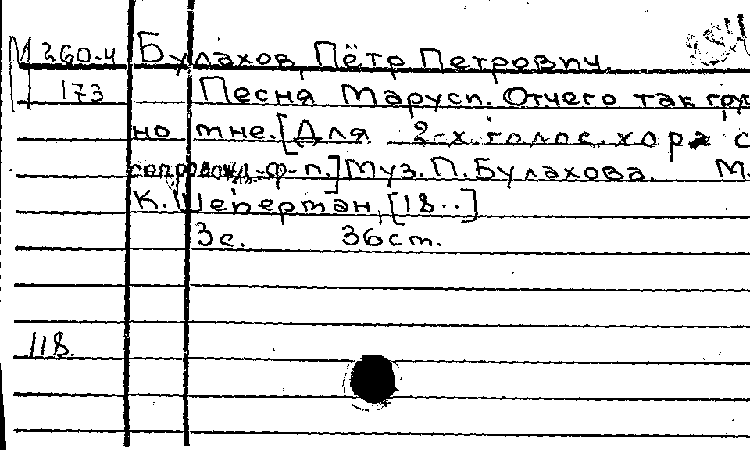 М 260-4 Булахов, Пётр Петрович.
173 Песня Маруси. Отчего так груст
но мне. [Для 2-х голос. хора с
сопровожд. ф-п.] Муз. П. Булахова. М.
К. Мейерман, [18..]
3 с. 36 ст.
118